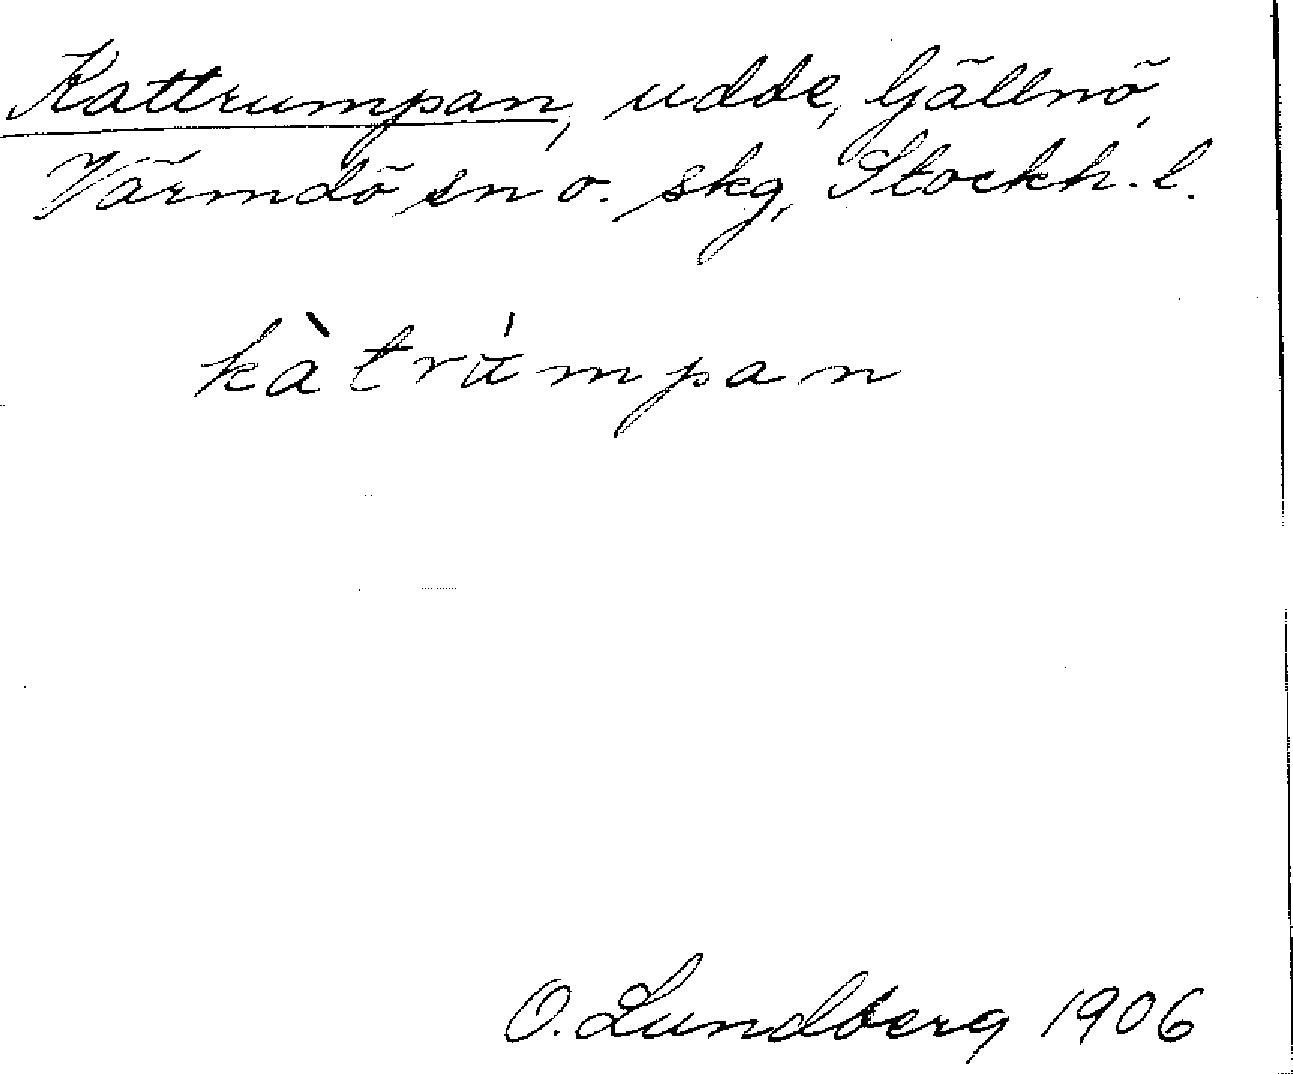 Kattrumpan, udde, Gällnö,
Värmdö sn o. skg, Stockh. l.
kàtru̇́mpan
O. Lundberg 1906